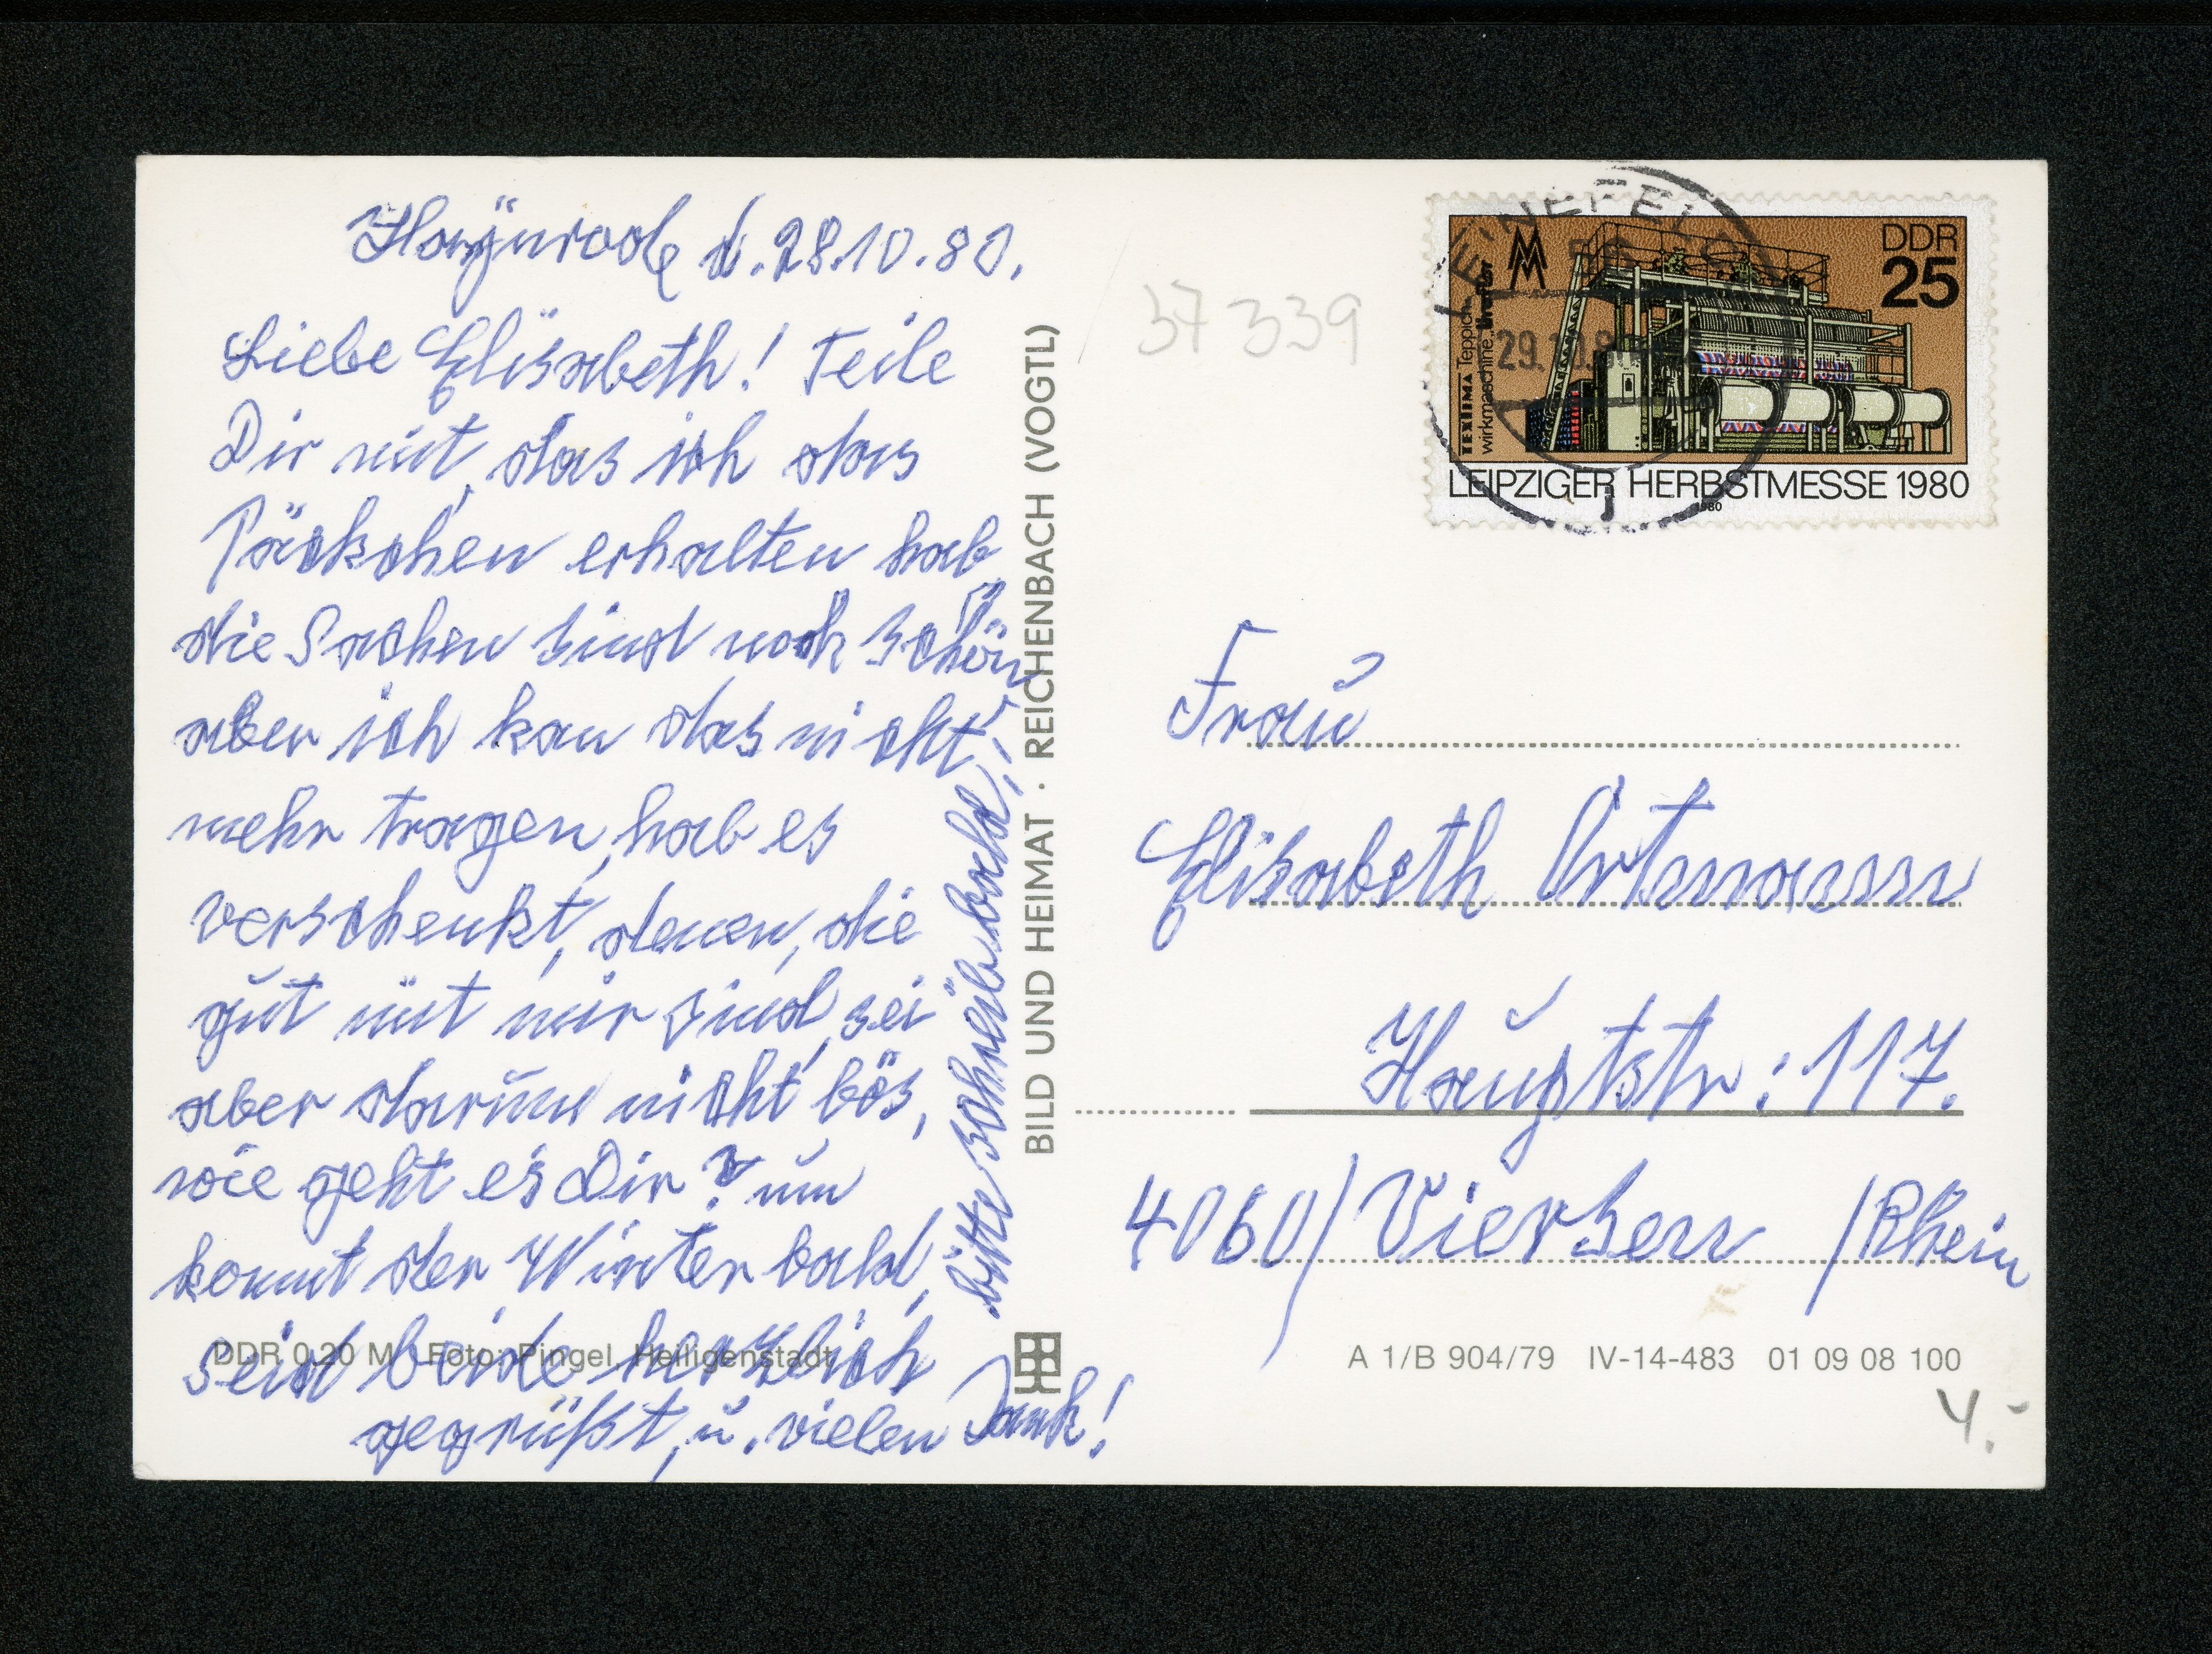 Haynrode d. 28.10.80.
Liebe Elisabeth! Teile
Dir mit, das ich das
Päckchen erhalten hab,
die Sachen sind noch schön
aber ich kan das nicht
mehr tragen, hab es
verschenkt, denen, die
gut mit mir sind, sei
aber darum nicht bös,
wie geht es Dir? nun
komt der Winter bald,
seid beide herzlich
gegrüßt, u. vielen Dank!
bitte schreib bald,!
DDR 0,20 M Foto: Pingel, Heiligenstadt
BILD UND HEIMAT · REICHENBACH (VOGTL)
37339
LEINEFELDE
29.10.80
j
DDR
25
TEXTIMA Teppich-
wirkmaschine
LEIPZIGER HERBSTMESSE 1980
1980
Frau
Elisabeth Ortmann
Hauptstr: 117.
4060/Viersen /Rhein
A 1/B 904/79 IV-14-483 01 09 08 100
4.-